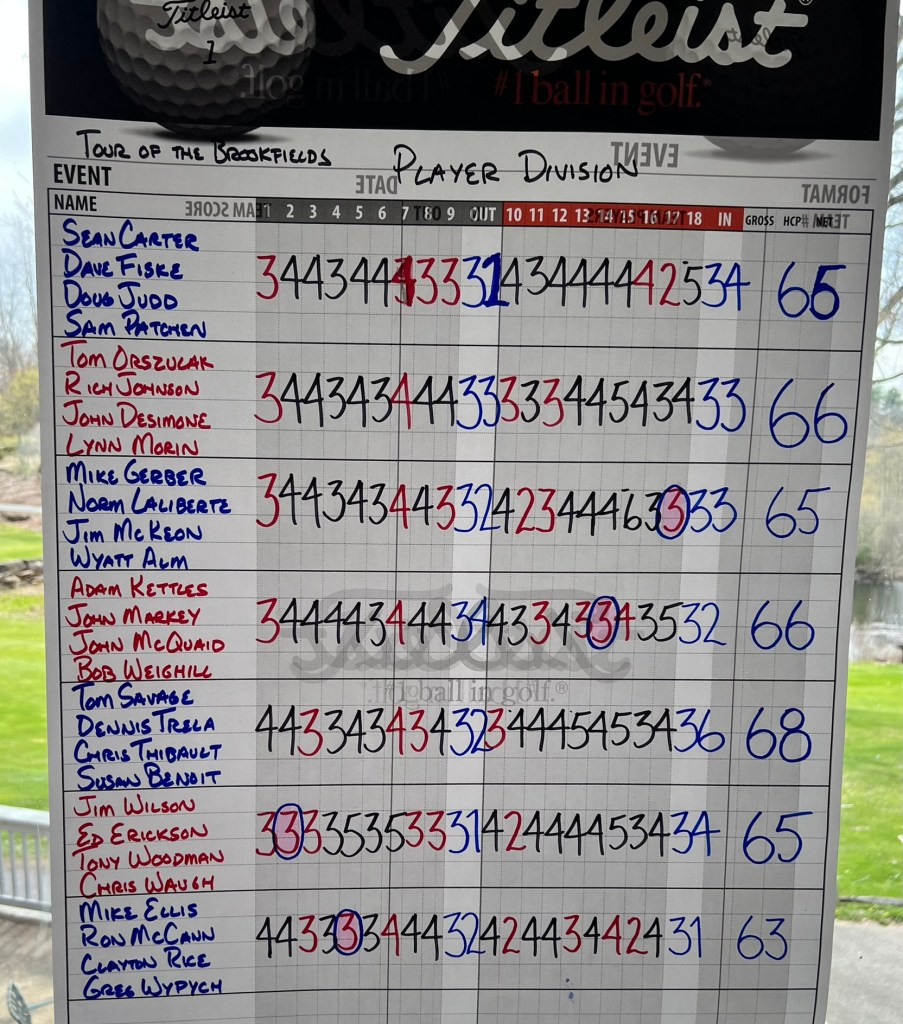 Titleist
1
Titleist®
#1 ball in golf.®
TOUR OF THE BROOKFIELDS PLAYER DIVISION
EVENT DATE EVENT FORMAT
NAME TEAM SCORE 1 2 3 4 5 6 7 8 9 OUT 10 11 12 13 14 15 16 17 18 IN GROSS HCP NET
SEAN CARTER
DAVE FISKE
DOUG JUDD
SAM PATCHEN
3 4 4 3 4 4 3 3 3 31 4 3 4 4 4 4 4 2 5 34 65
TOM ORSZULAK
RICH JOHNSON
JOHN DESIMONE
LYNN MORIN
3 4 4 3 4 3 4 4 4 33 3 3 3 4 4 5 4 3 4 33 66
MIKE GERBER
NORM LALIBERTE
JIM MCKEON
WYATT ALM
3 4 4 3 4 3 4 4 3 32 4 2 3 4 4 4 6 3 3 33 65
ADAM KETTLES
JOHN MARKEY
JOHN MCQUAID
BOB WEIGHILL
3 4 4 4 4 3 4 4 4 34 4 3 3 4 3 3 4 3 5 32 66
TOM SAVAGE
DENNIS TRELA
CHRIS THIBAULT
SUSAN BENOIT
4 4 3 3 4 3 4 3 4 32 3 4 4 4 5 4 5 3 4 36 68
JIM WILSON
ED ERICKSON
TONY WOODMAN
CHRIS WAUGH
3 3 3 3 5 3 5 3 3 31 4 2 4 4 4 4 5 3 4 34 65
MIKE ELLIS
RON MCCANN
CLAYTON RICE
GREG WYPYCH
4 4 3 3 3 3 4 4 4 32 4 2 4 4 3 4 4 2 4 31 63